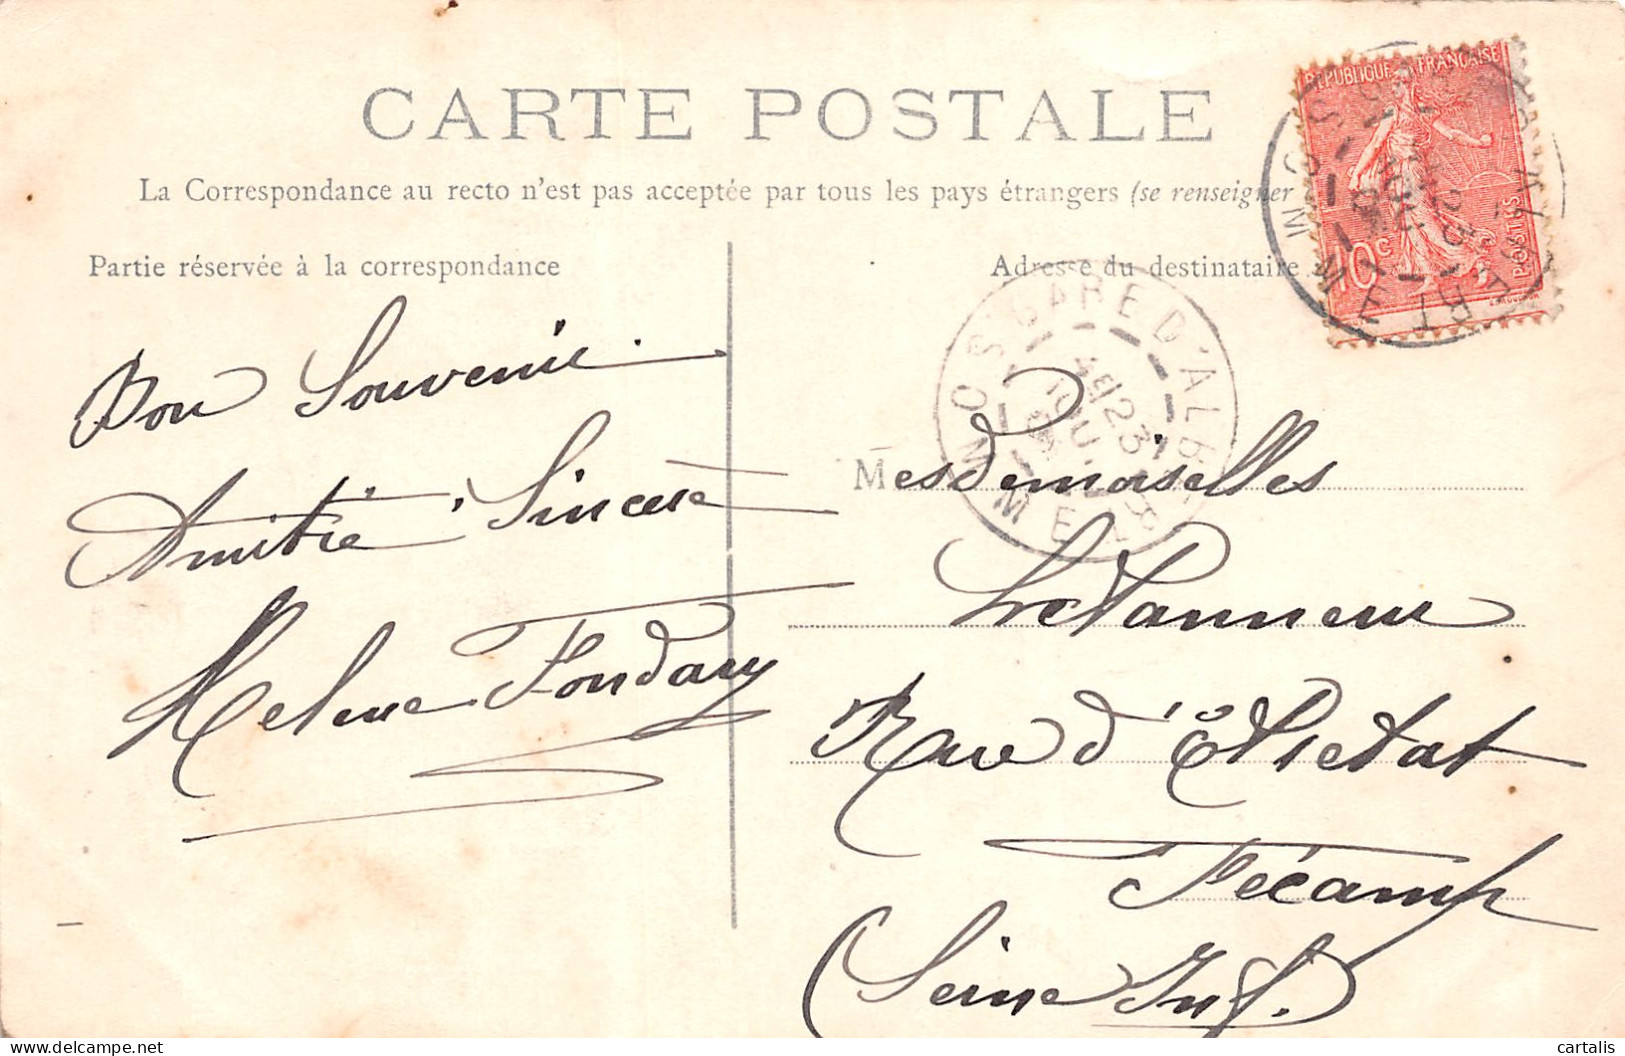 CARTE POSTALE
La Correspondance au recto n'est pas acceptée par tous les pays étrangers (se renseigner
Partie réservée à la correspondance
Adresse du destinataire
RÉPUBLIQUE FRANÇAISE
10c
POSTES
GARE D'ALBERT
SOMME
Bon Souvenir.
Amitié Sincère
Helene Fondary
Mesdemoiselles
LeTanneur
Rue d'Étretat
Fécamp
(Seine Inf.)
cartalis